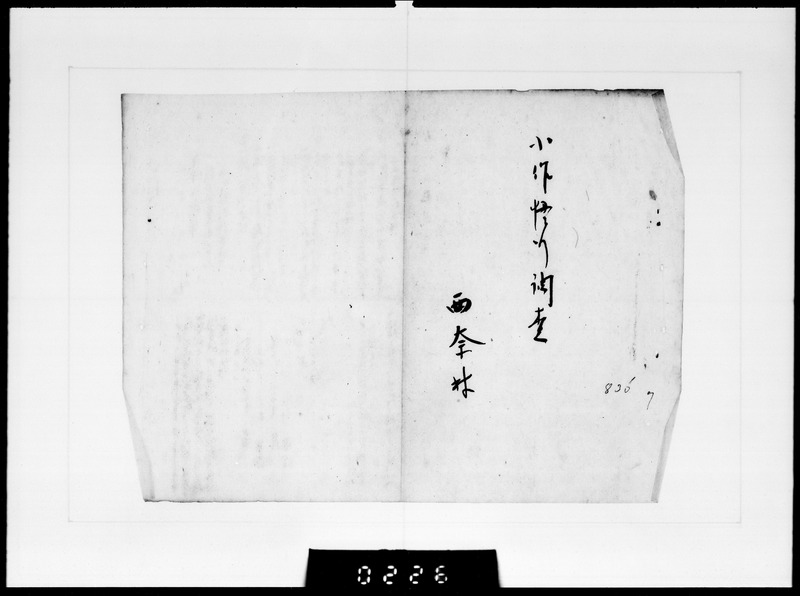 小作慣行調査
西奈村
836
7
0226